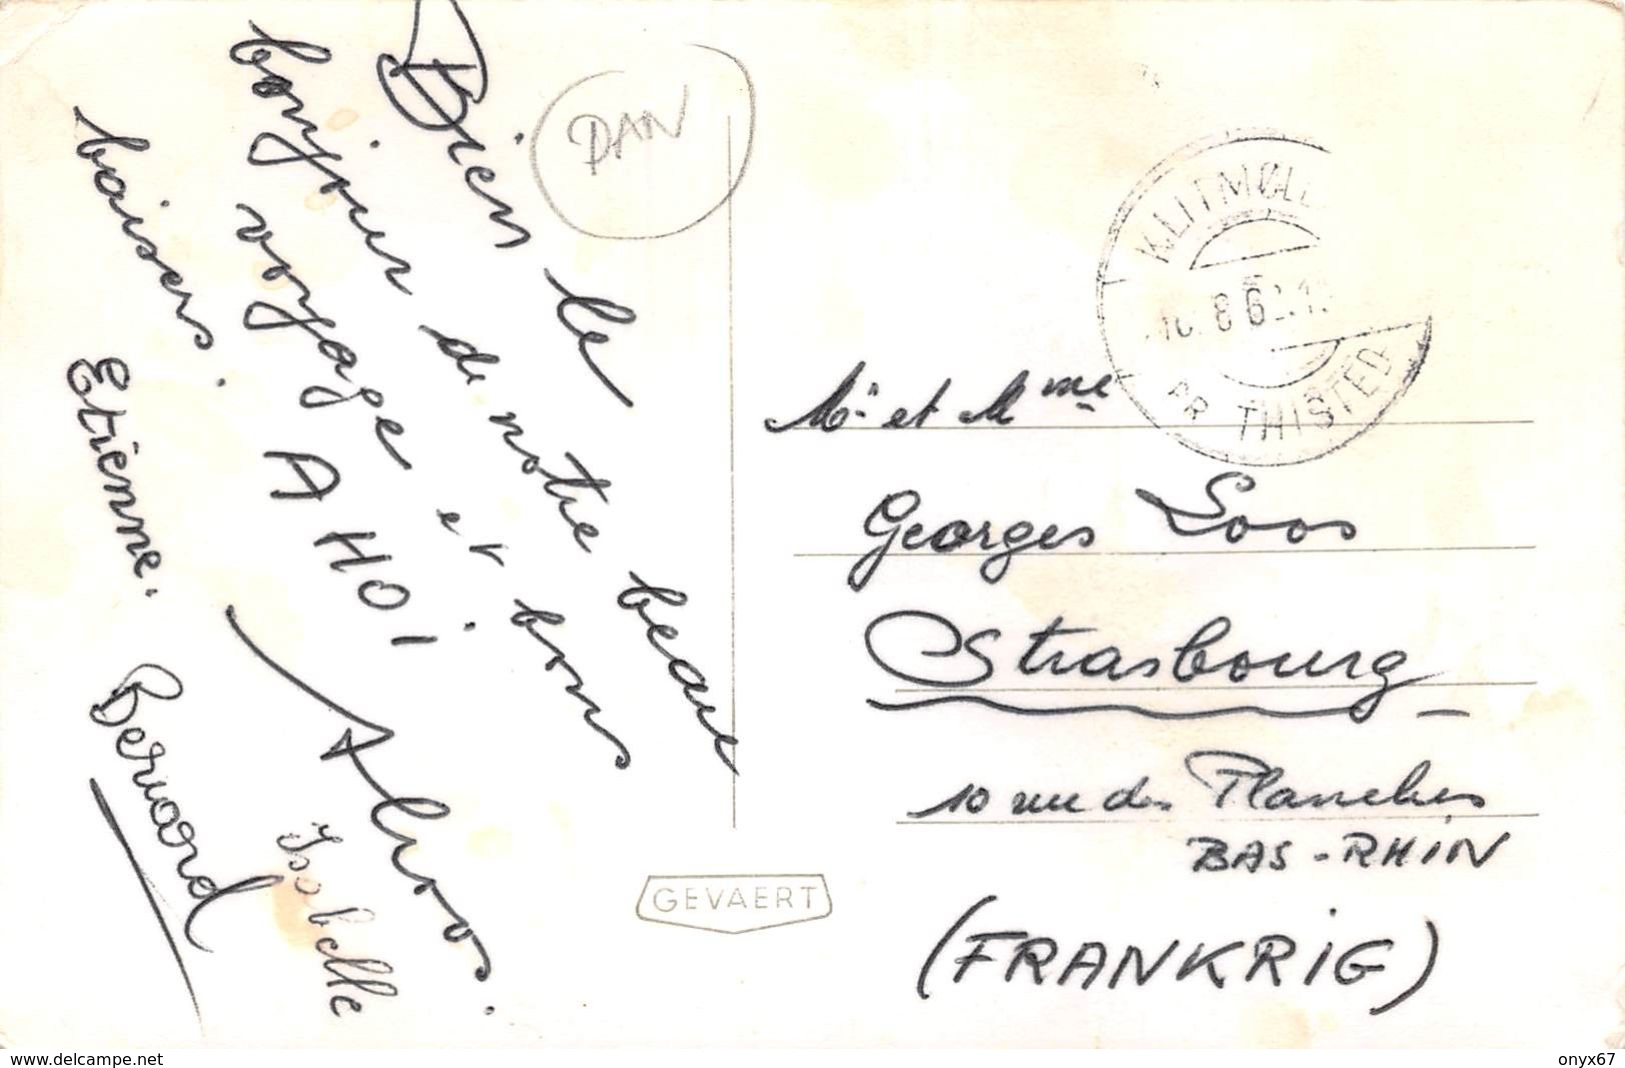 Bien le
bonjour de notre beau
voyage et bons
baisers.
AHOI
Etienne.
Bernard
Isabelle
DAN
KLITMØLL
8 6
PR THISTED
Mr et Mme
Georges Loos
Strasbourg
10 rue des Planches
BAS-RHIN
(FRANKRIG)
GEVAERT
www.delcampe.net
onyx67